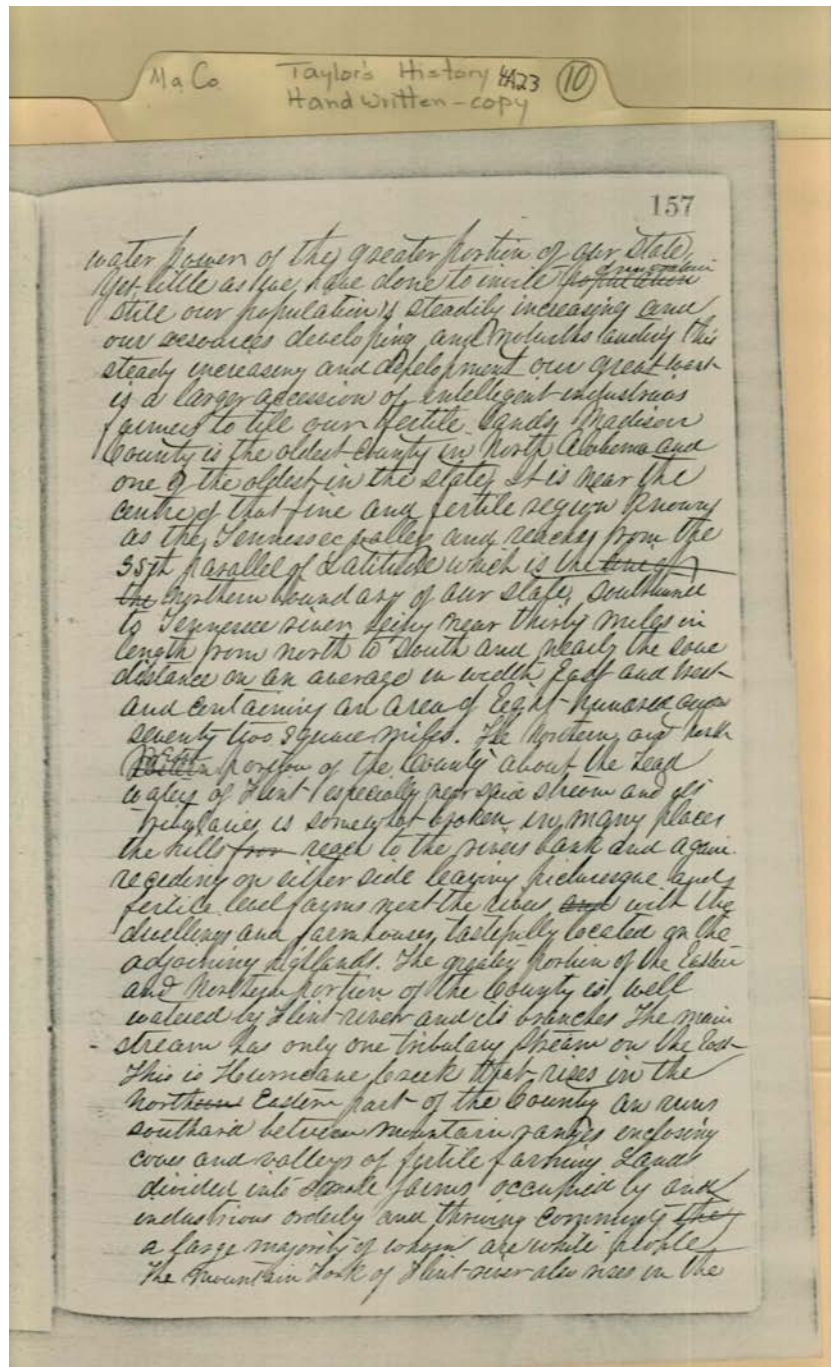 Ma Co Taylor's History 4A23 10
Hand written - copy
157
water power of the greater portion of our State,
Yet little as we have done to invite immigration population
still our population is steadily increasing and
our resources developing and notwithstanding this
steady increasing and development our great want
is a larger accession of intelligent industrious
farmers to till our fertile lands. Madison
County is the oldest county in North Alabama and
one of the oldest in the state, It is near the
centre of that fine and fertile region known
as the Tennessee valley and reaches from the
35th parallel of Latitude which is the line of
the northern boundary of our state, southward
to Tennessee river being near thirty miles in
length from north to South and nearly the same
distance on an average in width East and West
and containing an area of Eight hundred and
seventy two square miles. The Northern and North
portion of the County about the head
waters of Flint especially near said stream and its
tributaries is somewhat broken in many places
the hills from reach to the rivers bank and again
receding on either side leaving picturesque and
fertile level farms next the river and with the
dwellings and farm houses tastefully located on the
adjoining highlands. The greater portion of the Eastern
and Northern portion of the County is well
watered by Flint river and its branches The main
stream has only one tributary stream on the East
This is Hurricane Creek that rises in the
Northern Eastern part of the County an runs
southard between mountain ranges enclosing
coves and valleys of fertile farming Lands
divided into small farms, occupied by and
industrious orderly and thriving community the
a large majority of whom are white people
The Mountain Fork of Flint river also rises in the